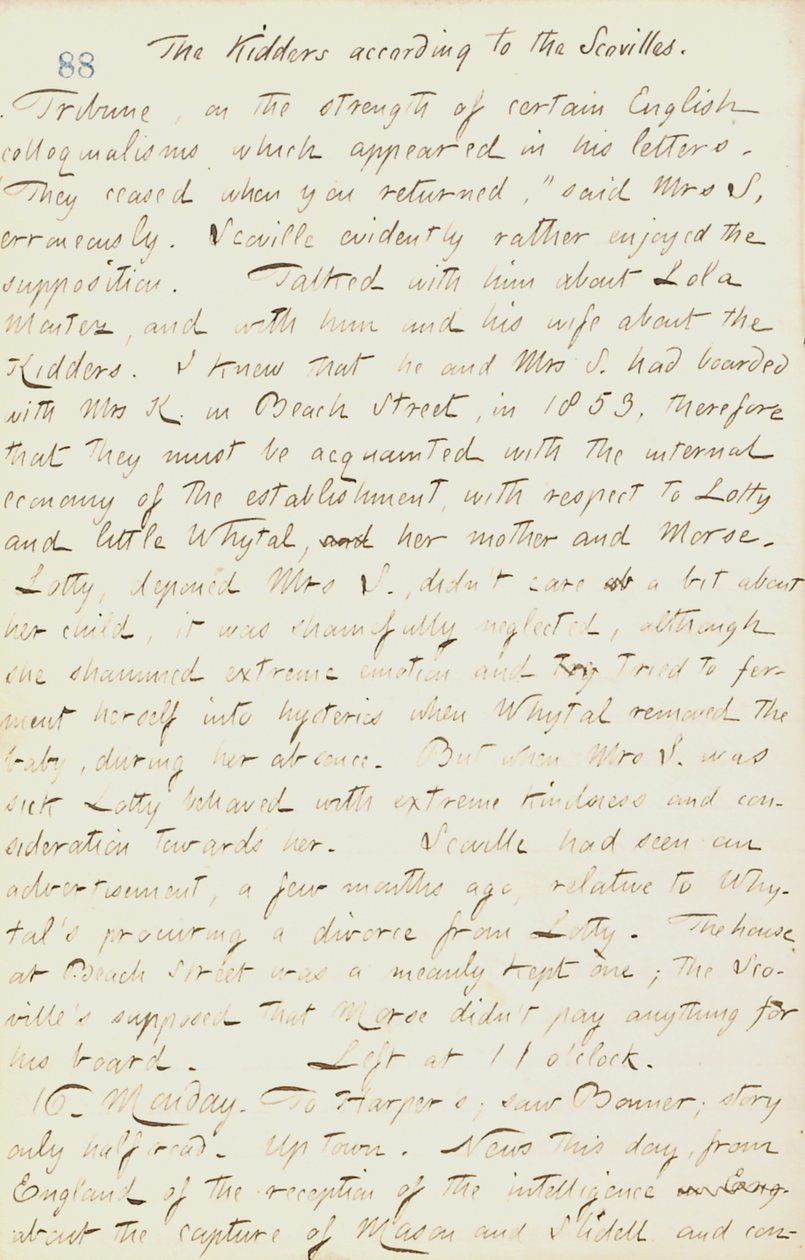 88
The Kidders according to the Scovilles.
Tribune, on the strength of certain English
colloquialisms which appeared in his letters.
"They ceased when you returned," said Mrs S,
erroneously. Scoville evidently rather enjoyed the
supposition. Talked with him about Lola
Montez, and with him and his wife about the
Kidders. I knew that he and Mrs S. had boarded
with Mrs K. in Beach Street, in 1853, therefore
that they must be acquainted with the internal
economy of the establishment, with respect to Lotty
and little Whytal, and her mother and Morse.
Lotty, deposed Mrs S., didn't care ab a bit about
her child, it was shamefully neglected, although
she shammed extreme emotion and try tried to fer-
ment herself into hysterics when Whytal removed the
baby, during her absence. But when Mrs S. was
sick Lotty behaved with extreme kindness and con-
sideration towards her. Scoville had seen an
advertisement, a few months ago, relative to Why-
tal's procuring a divorce from Lotty. The house
at Beach Street was a meanly kept one; the Sco-
ville's supposed that Morse didn't pay anything for
his board. Left at 11 o'clock.
16. Monday. To Harper's; saw Bonner; story
only half read. Up town. News this day, from
England of the reception of the intelligence in Eng-
about the capture of Mason and Slidell and con-